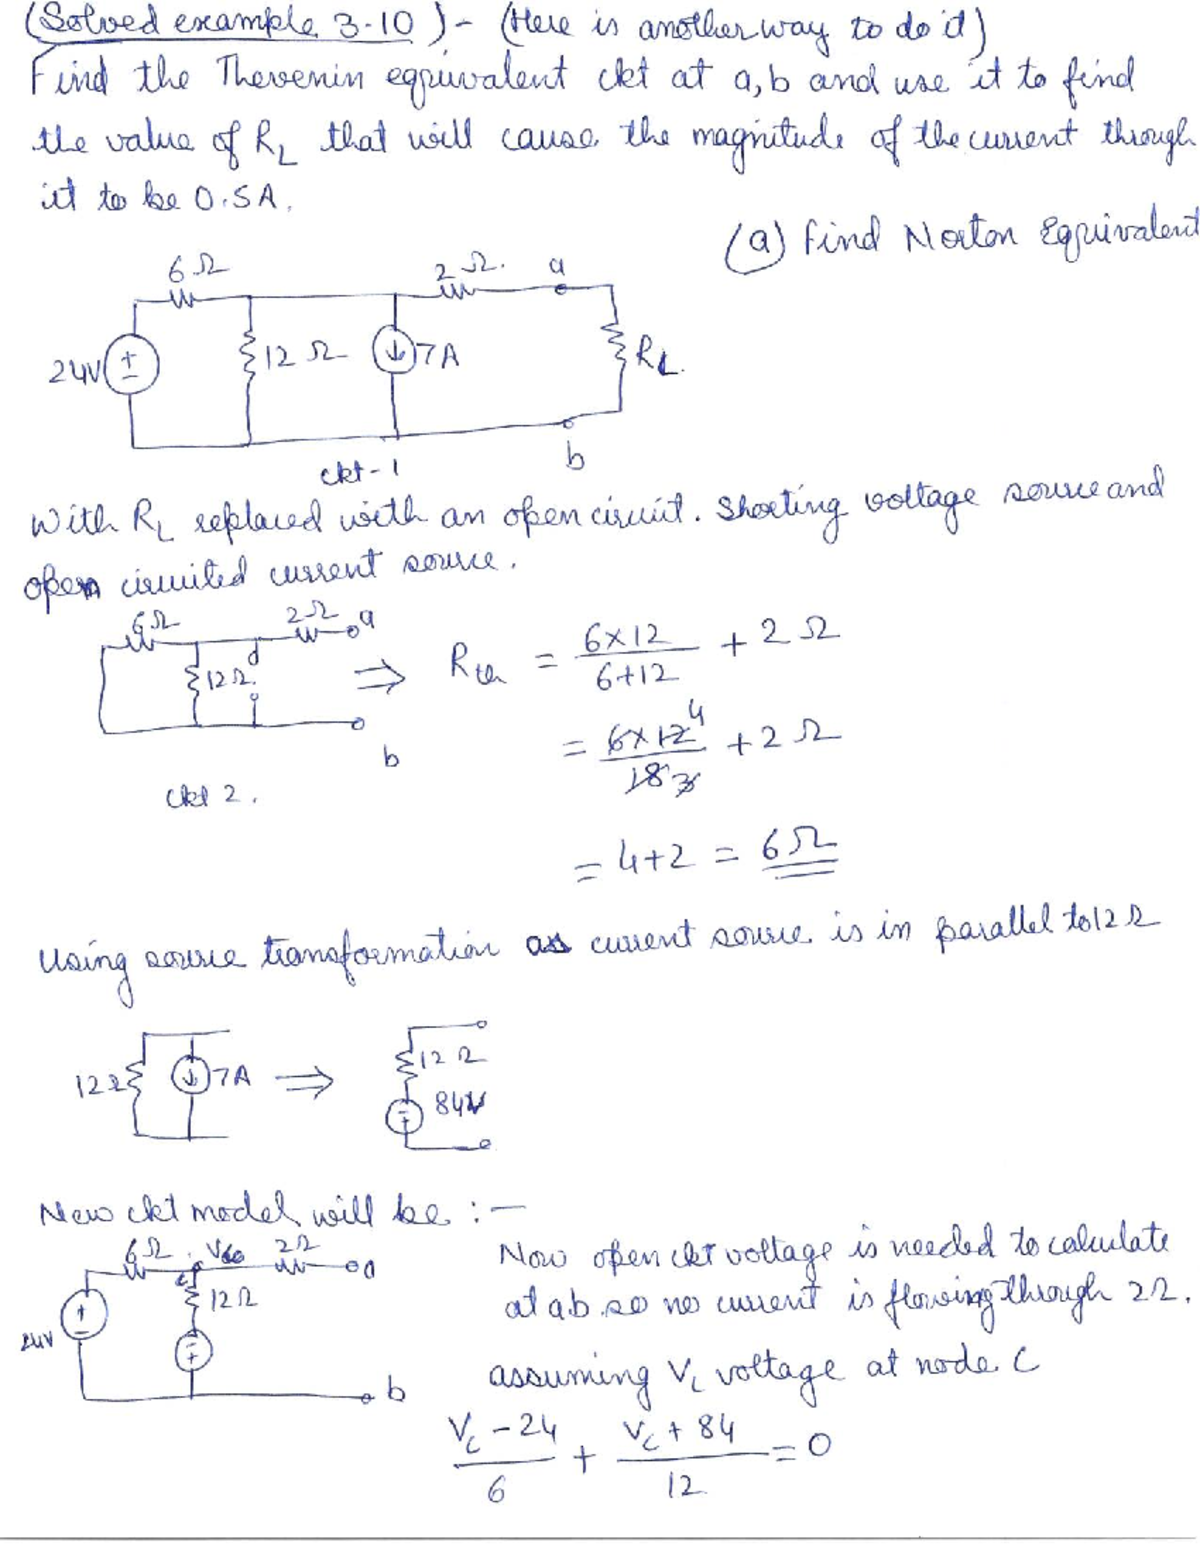 (Solved example 3-10) - (Here is another way to do it)
Find the Thevenin equivalent ckt at a, b and use it to find
the value of RL that will cause the magnitude of the current through
it to be 0.5A.
(a) Find Norton Equivalent
6Ω 2Ω. a
24V + - 12Ω 7A RL.
b
ckt-1
With RL replaced with an open circuit. Shorting voltage source and
open circuited current source.
6Ω 2Ω a
12Ω.
b
ckt 2.
⇒ Rth = 6×12 / 6+12 + 2Ω
= 6×12 4 / 18 3 + 2Ω
= 4+2 = 6Ω
Using source transformation as current source is in parallel to 12Ω
12Ω 7A ⇒ 12Ω
84V
New ckt model will be :-
6Ω 2Ω a
c 12Ω
24V + - - +
b
Now open ckt voltage is needed to calculate
at ab so no current is flowing through 2Ω.
assuming Vc voltage at node C
Vc - 24 / 6 + Vc + 84 / 12 = 0